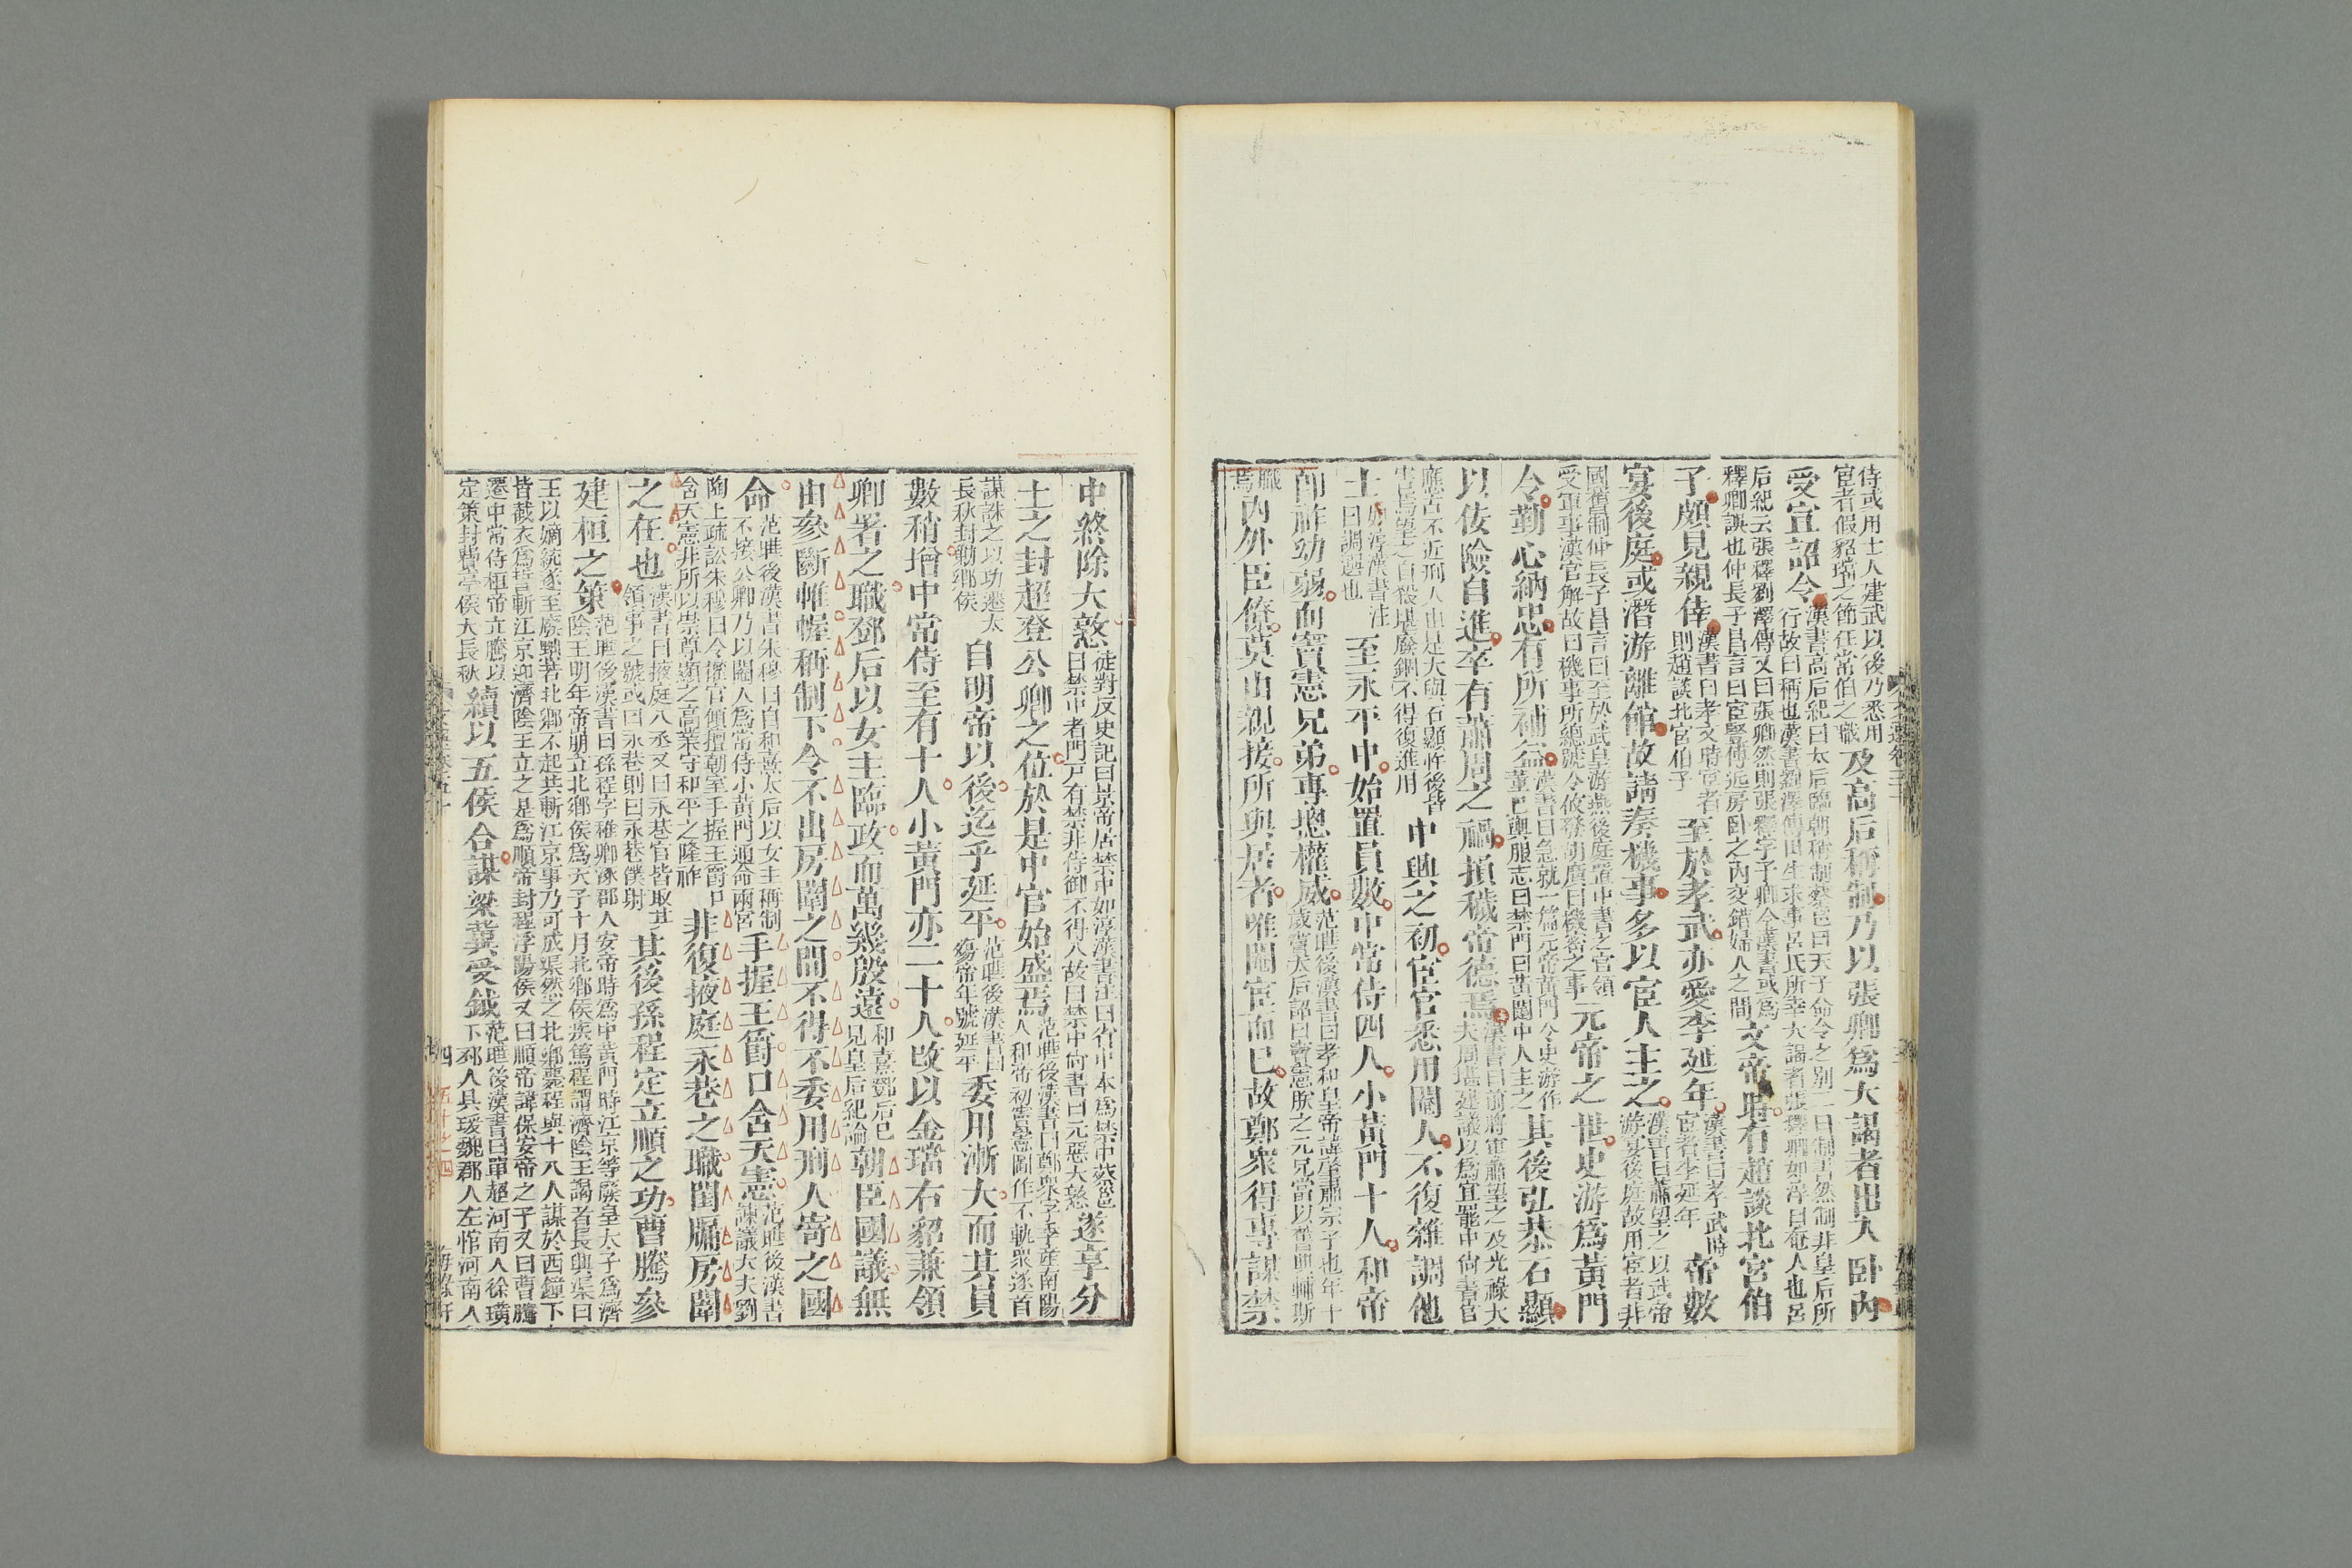 侍或用士人建武以後乃悉用
宦者假貂璫之飾任常伯之職
及高后稱制乃以張卿爲大謁者出入卧內
受宣詔令
漢書高后紀曰太后臨朝稱制蔡邕曰天子命令之別二曰制書然制非皇后所
行故曰稱也漢書劉澤傳田生求事呂氏所幸大謁者張釋卿如淳曰奄人也呂
后紀云張釋劉澤傳又曰張卿然則張釋字子卿今漢書或爲
釋卿誤也仲長子昌言曰宦豎傅近房卧之內交錯婦人之間
文帝時有趙談北宮伯
子頗見親倖
漢書曰孝文時宦者
則趙談北宮伯子
至於孝武亦愛李延年
漢書曰孝武時
宦者李延年
帝數
宴後庭或潛游離館故請奏機事多以宦人主之
漢書曰蕭望之以武帝
游宴後庭故用宦者非
國舊制仲長子昌言曰至於武皇游燕後庭置中書之官領
受軍事漢官解故曰機事所總號令攸發胡廣曰機密之事
元帝之世史游爲黃門
令勤心納忠有所補益
漢書曰急就一篇元帝黃門令史游作
董巴輿服志曰禁門曰黃闥中人主之
其後弘恭石顯
以佞險自進卒有蕭周之禍損穢帝德焉
漢書曰前將軍蕭望之及光祿大
夫周堪建議以爲宜罷中尚書宦
應古不近刑人由是大與石顯忤後皆
害焉望之自殺堪廢錮不得復進用
中興之初宦官悉用閹人不復雜調他
士
如淳漢書注
曰調選也
至永平中始置員數中常侍四人小黃門十人和帝
即祚幼弱而竇憲兄弟專總權威
范曄後漢書曰孝和皇帝諱肇肅宗子也年十
歲竇太后詔曰竇憲朕之元兄當以舊典輔斯
職
焉
內外臣僚莫由親接所與居者唯閹宦而已故鄭衆得專謀禁
中終除大憝
徒對反史記曰景帝居禁中如淳漢書注曰省中本爲禁中蔡邕
曰禁中者門戶有禁非侍御不得入故曰禁中尚書曰元惡大憝
遂享分
土之封超登公卿之位於是中官始盛焉
范曄後漢書曰鄭衆字季産南陽
人和帝初竇憲圖作不軌衆遂首
謀誅之以功遷大
長秋封勦鄉侯
自明帝以後迄乎延平
范曄後漢書曰
殤帝年號延平
委用漸大而其員
數稍增中常侍至有十人小黃門亦二十人改以金璫右貂兼領
卿署之職鄧后以女主臨政而萬幾殷遠
和熹鄧后已
見皇后紀論
朝臣國議無
由參斷帷幄稱制下令不出房闈之間不得不委用刑人寄之國
命
范曄後漢書朱穆曰自和熹太后以女主稱制
不接公卿乃以閹人爲常侍小黃門通命兩宮
手握王爵口含天憲
范曄後漢書
諫議大夫劉
陶上疏訟朱穆曰今權官傾擅朝室手握王爵口
含天憲非所以崇尊顯之高業守和平之隆祚
非復掖庭永巷之職閨牖房闥
之任也
漢書曰掖庭八丞又曰永巷官皆取其
領事之號或曰永巷則曰永巷僕射
其後孫程定立順之功曹騰參
建桓之策
范曄後漢書曰孫程字稚卿涿郡人安帝時爲中黃門時江京等廢皇太子爲濟
陰王明年帝崩立北鄉侯爲天子十月北鄉侯疾篤程謂濟陰王謁者長興渠曰
王以嫡統遂至廢黜若北鄉不起共斬江京事乃可成渠然之北鄉薨程與十八人謀於西鐘下
皆截衣爲誓斬江京迎濟陰王立之是爲順帝封程浮陽侯又曰順帝諱保安帝之子又曰曹騰
遷中常侍桓帝立騰以
定策封費亭侯大長秋
續以五侯合謀梁冀受鉞
范曄後漢書曰單超河南人徐璜
下邳人具瑗魏郡人左悺河南人
四
海錄軒